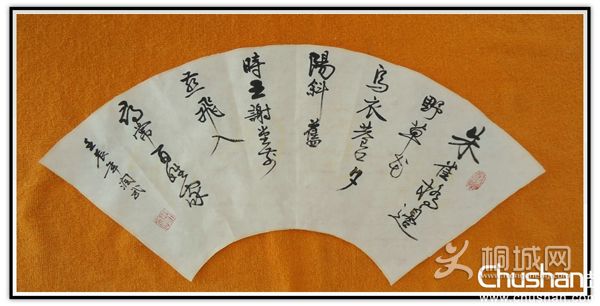 朱雀橋邊
野草花
烏衣巷口夕
陽斜舊
時王謝堂前
燕飛入
尋常百姓家
壬辰年润武
桐城网
Chushan
www.chushan.com